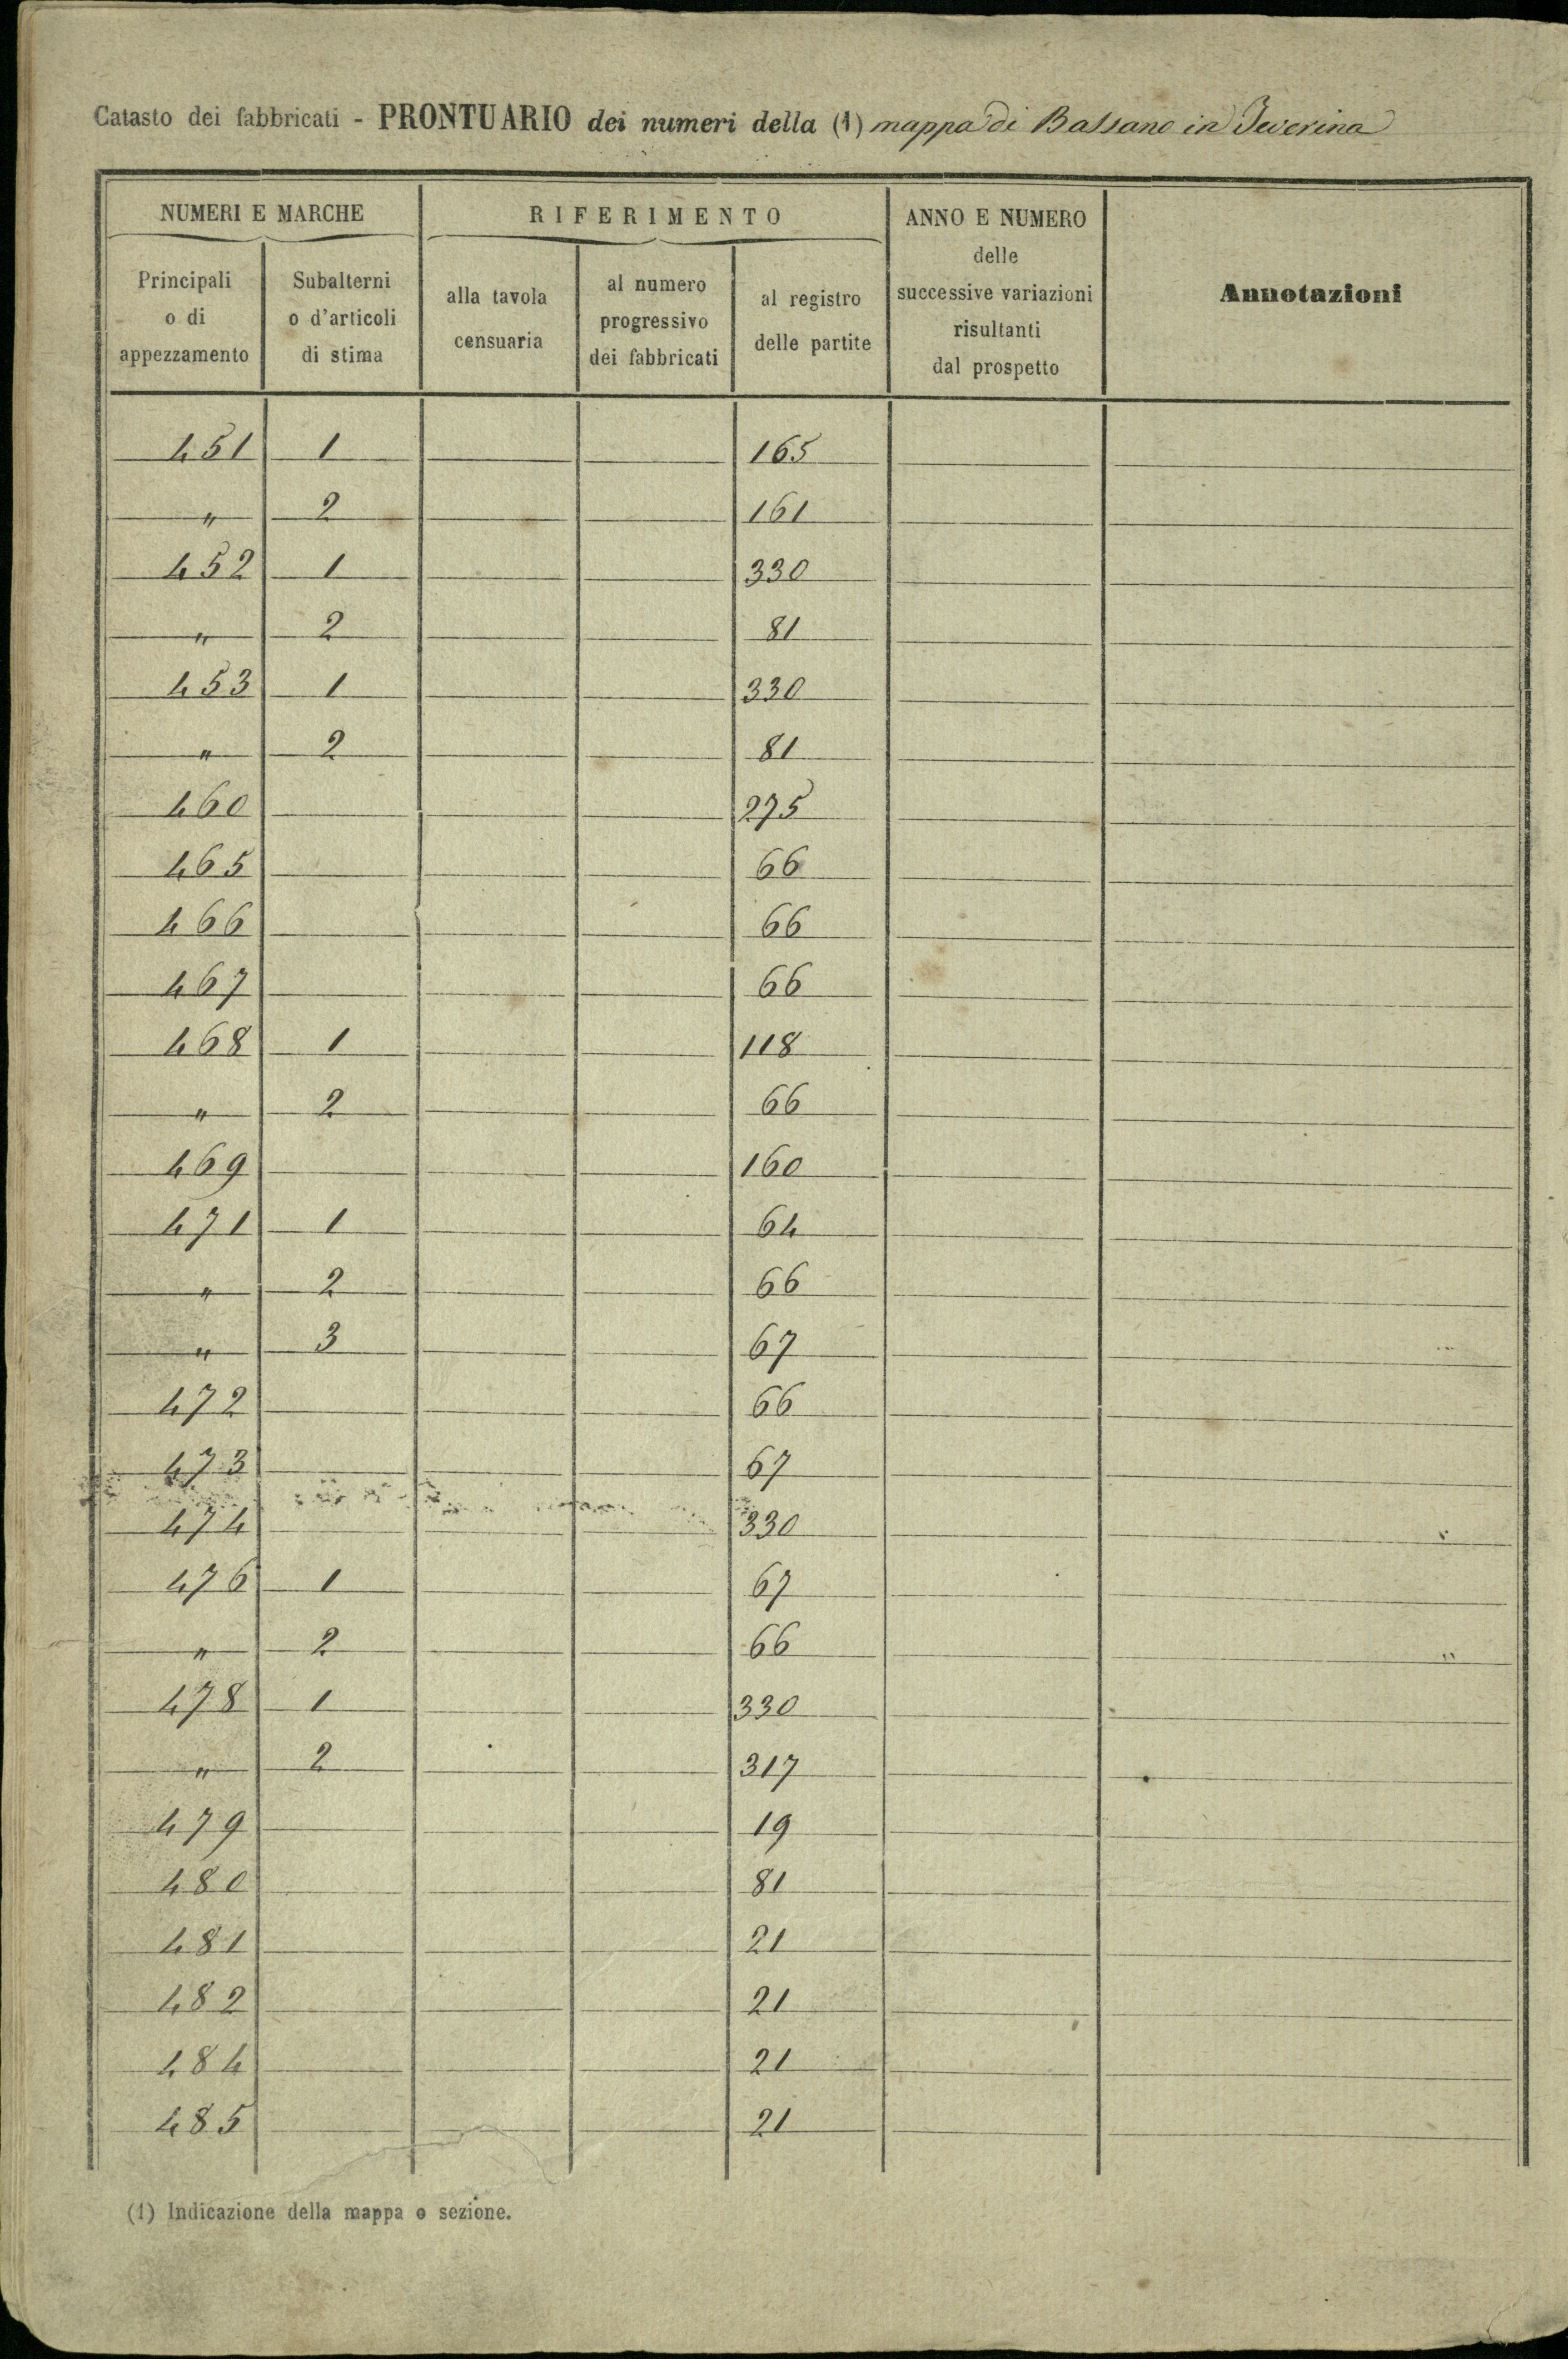 Catasto dei fabbricati - PRONTUARIO dei numeri della (1) mappa di Bassano in Teverina
NUMERI E MARCHE
RIFERIMENTO
ANNO E NUMERO
delle
successive variazioni
risultanti
dal prospetto
Annotazioni
Principali
o di
appezzamento
Subalterni
o d'articoli
di stima
alla tavola
censuaria
al numero
progressivo
dei fabbricati
al registro
delle partite
451 1 165
" 2 161
452 1 330
" 2 81
453 1 330
" 2 81
460 275
465 66
466 66
467 66
468 1 118
" 2 66
469 160
471 1 64
" 2 66
" 3 67
472 66
473 67
474 330
476 1 67
" 2 66
478 1 330
" 2 317
479 19
480 81
481 21
482 21
484 21
485 21
(1) Indicazione della mappa o sezione.